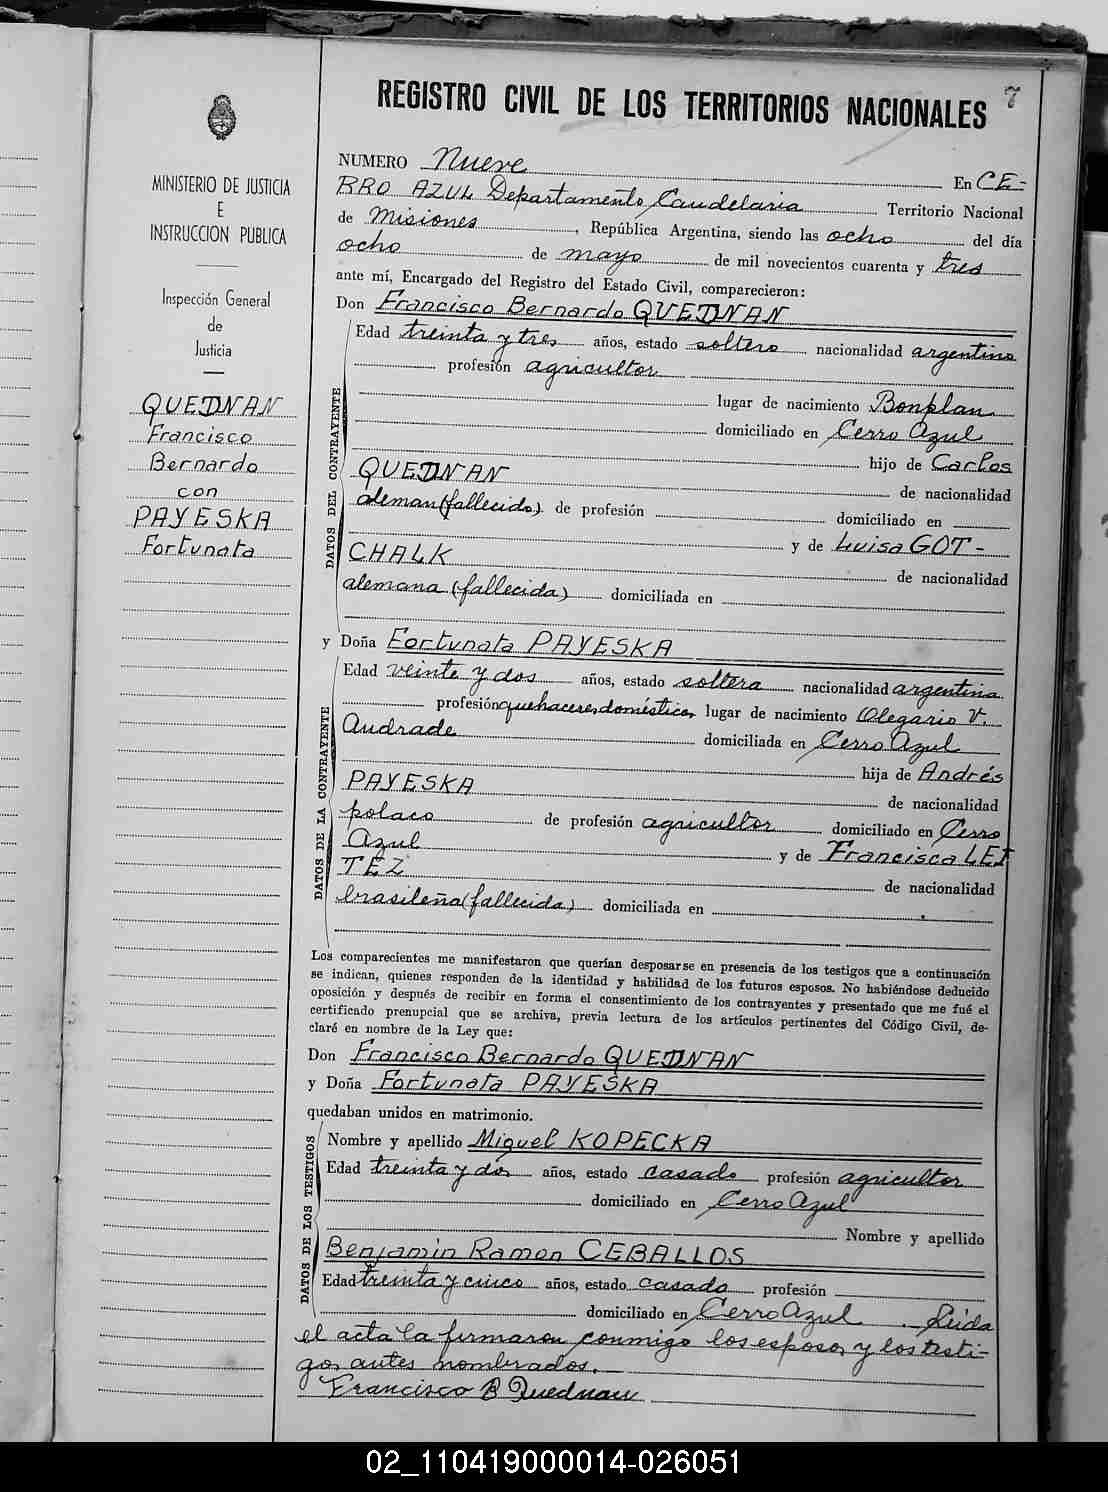 7
REGISTRO CIVIL DE LOS TERRITORIOS NACIONALES
MINISTERIO DE JUSTICIA
E
INSTRUCCION PUBLICA
Inspección General
de
Justicia
QUEDNAN
Francisco
Bernardo
con
PAYESKA
Fortunata
NUMERO Nueve En CE-
RRO AZUL Departamento Candelaria Territorio Nacional
de Misiones, República Argentina, siendo las ocho del día
ocho de mayo de mil novecientos cuarenta y tres
ante mí, Encargado del Registro del Estado Civil, comparecieron:
Don Francisco Bernardo QUEDNAN
DATOS DEL CONTRAYENTE
Edad treinta y tres años, estado soltero nacionalidad argentino
profesión agricultor
lugar de nacimiento Bonplan
domiciliado en Cerro Azul
hijo de Carlos
QUEDNAN de nacionalidad
aleman (fallecido) de profesión domiciliado en
y de Luisa GOT-
CHALK de nacionalidad
alemana (fallecida) domiciliada en
y Doña Fortunata PAYESKA
DATOS DE LA CONTRAYENTE
Edad veinte y dos años, estado soltera nacionalidad argentina
profesión quehaceres domésticos lugar de nacimiento Olegario V.
Andrade domiciliada en Cerro Azul
hija de Andrés
PAYESKA de nacionalidad
polaco de profesión agricultor domiciliado en Cerro
Azul y de Francisca LEI
TEZ de nacionalidad
brasileña (fallecida) domiciliada en
Los comparecientes me manifestaron que querían desposarse en presencia de los testigos que a continuación
se indican, quienes responden de la identidad y habilidad de los futuros esposos. No habiéndose deducido
oposición y después de recibir en forma el consentimiento de los contrayentes y presentado que me fué el
certificado prenupcial que se archiva, previa lectura de los artículos pertinentes del Código Civil, de-
claré en nombre de la Ley que:
Don Francisco Bernardo QUEDNAN
y Doña Fortunata PAYESKA
quedaban unidos en matrimonio.
DATOS DE LOS TESTIGOS
Nombre y apellido Miguel KOPECKA
Edad treinta y dos años, estado casado profesión agricultor
domiciliado en Cerro Azul
Nombre y apellido
Benjamin Ramon CEBALLOS
Edad treinta y cinco años, estado casado profesión
domiciliado en Cerro Azul. Leida
el acta la firmaron conmigo los esposos y los testi-
gos antes nombrados.
Francisco B Quednau
02_110419000014-026051